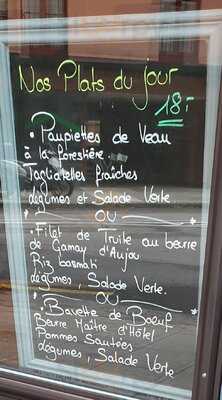 Nos Plats du jour
18.-
• Paupiettes de Veau
à la forestière.
Tagliatelles fraîches
légumes et Salade Verte
* OU *
• Filet de Truite au beurre
de Gamay d'Anjou
Riz basmati
légumes, Salade Verte.
* OU *
• Bavette de Boeuf
Beurre Maître d'Hôtel
Pommes Sautées
légumes, Salade Verte